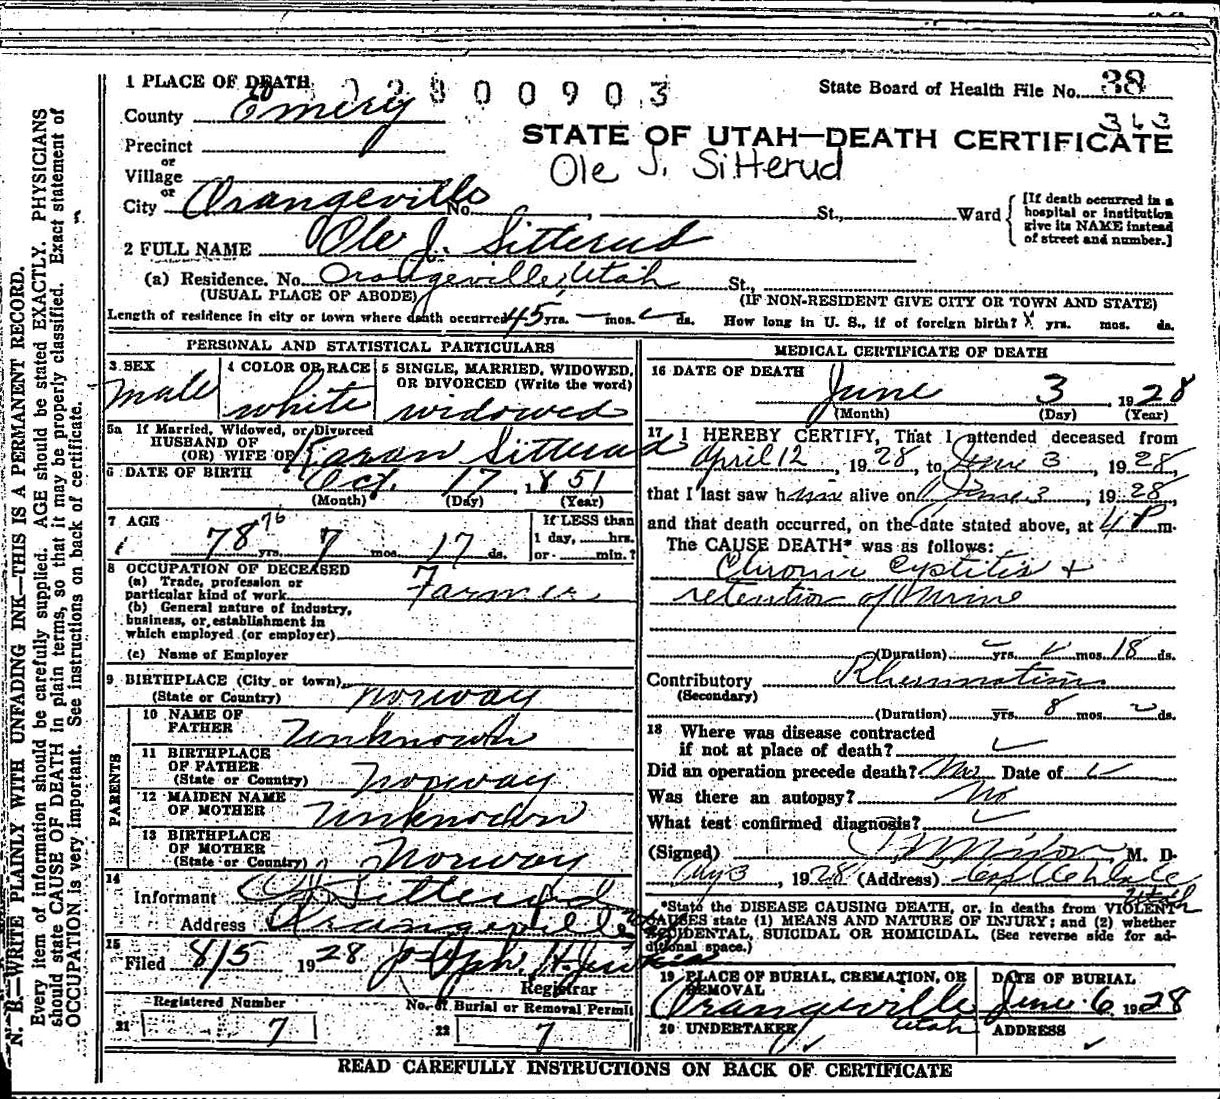 1 PLACE OF DEATH
2800903
State Board of Health File No. 38
363
County Emery
STATE OF UTAH—DEATH CERTIFICATE
Precinct
or
Village
Ole J. Sitterud
or
City Orangeville No. St., Ward
[If death occurred in a hospital or institution give its NAME instead of street and number.]
2 FULL NAME Ole J. Sitterud
(a) Residence. No. Orangeville, Utah St.,
(USUAL PLACE OF ABODE) (IF NON-RESIDENT GIVE CITY OR TOWN AND STATE)
Length of residence in city or town where death occurred 45 yrs. — mos. ds. How long in U. S., if of foreign birth? yrs. mos. ds.
PERSONAL AND STATISTICAL PARTICULARS
3 SEX
male
4 COLOR OR RACE
white
5 SINGLE, MARRIED, WIDOWED, OR DIVORCED (Write the word)
widowed
5a If Married, Widowed, or Divorced
HUSBAND OF
(OR) WIFE OF Karan Sitterud
6 DATE OF BIRTH Oct. 17, 1851
(Month) (Day) (Year)
7 AGE
76
78 yrs. 7 mos. 17 ds.
If LESS than
1 day, hrs.
or min.?
8 OCCUPATION OF DECEASED
(a) Trade, profession or
particular kind of work Farmer
(b) General nature of industry,
business, or establishment in
which employed (or employer)
(c) Name of Employer
9 BIRTHPLACE (City or town)
(State or Country) Norway
PARENTS
10 NAME OF
FATHER Unknown
11 BIRTHPLACE
OF FATHER
(State or Country) Norway
12 MAIDEN NAME
OF MOTHER Unknown
13 BIRTHPLACE
OF MOTHER
(State or Country) Norway
14
Informant Sitterud
Address Orangeville
15
Filed 8/5 1928 Joseph H.
Registrar
Registered Number
21 7
No. of Burial or Removal Permit
22 7
MEDICAL CERTIFICATE OF DEATH
16 DATE OF DEATH
June 3, 1928
(Month) (Day) (Year)
17 I HEREBY CERTIFY, That I attended deceased from
April 12, 1928, to June 3, 1928,
that I last saw him alive on June 3, 1928,
and that death occurred, on the date stated above, at 4 P m.
The CAUSE DEATH* was as follows:
Chronic Cystitis +
retention of Urine
(Duration) yrs. mos. 18 ds.
Contributory Rheumatism
(Secondary)
(Duration) yrs. 8 mos. ds.
18 Where was disease contracted
if not at place of death?
Did an operation precede death? No Date of
Was there an autopsy? No
What test confirmed diagnosis?
(Signed) M. D.
3, 1928 (Address) Castle Dale
Utah
*State the DISEASE CAUSING DEATH, or, in deaths from VIOLENT
CAUSES state (1) MEANS AND NATURE OF INJURY; and (2) whether
ACCIDENTAL, SUICIDAL OR HOMICIDAL. (See reverse side for ad-
ditional space.)
19 PLACE OF BURIAL, CREMATION, OR
REMOVAL
Orangeville
Utah
DATE OF BURIAL
June 6 1928
20 UNDERTAKER
ADDRESS
READ CAREFULLY INSTRUCTIONS ON BACK OF CERTIFICATE
N. B.—WRITE PLAINLY WITH UNFADING INK—THIS IS A PERMANENT RECORD.
Every item of information should be carefully supplied. AGE should be stated EXACTLY. PHYSICIANS
should state CAUSE OF DEATH in plain terms, so that it may be properly classified. Exact statement of
OCCUPATION is very important. See instructions on back of certificate.